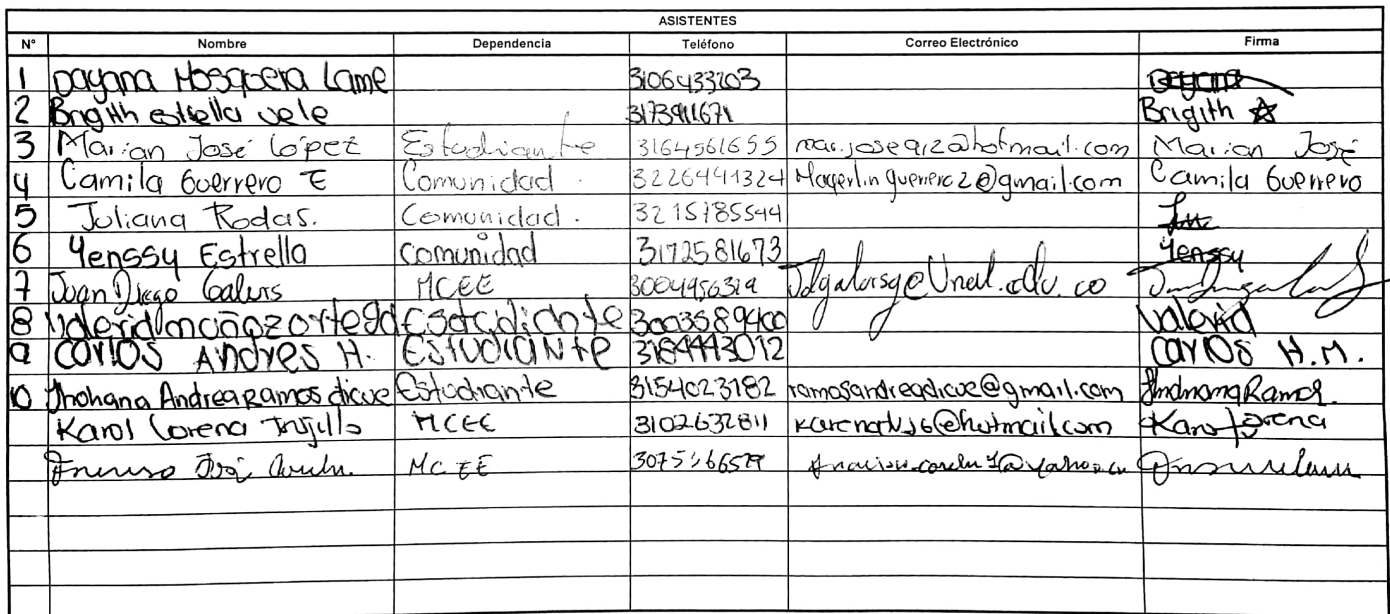 ASISTENTES
N° Nombre Dependencia Teléfono Correo Electrónico Firma
1 Dayana Mosquera Lame 3106433203 Dayana
2 Brigith estrella vele 3173911671 Brigith
3 Marian José López Estudiante 3164561655 Marian José
4 Camila Guerrero E Comunidad. 3226441324 Magerlinguerrero2@gmail.com Camila Guerrero
5 Juliana Rodas. Comunidad. 3215785544
6 Yenssy Estrella comunidad 3172581673 Yenssy
7 Juan Diego MCEE 3004956319
8 Valeria 3003589400 Valeria
9 CARLOS ANDRES H. ESTUDIANTE 3184443012 CARLOS H.M.
10 Jhohana Andrea Ramos dicue Estudiante 3154023182 ramosandreadicue@gmail.com Ramos.
Karol Lorena Trujillo MCEE 3102632811 Karol Lorena
José MCEE